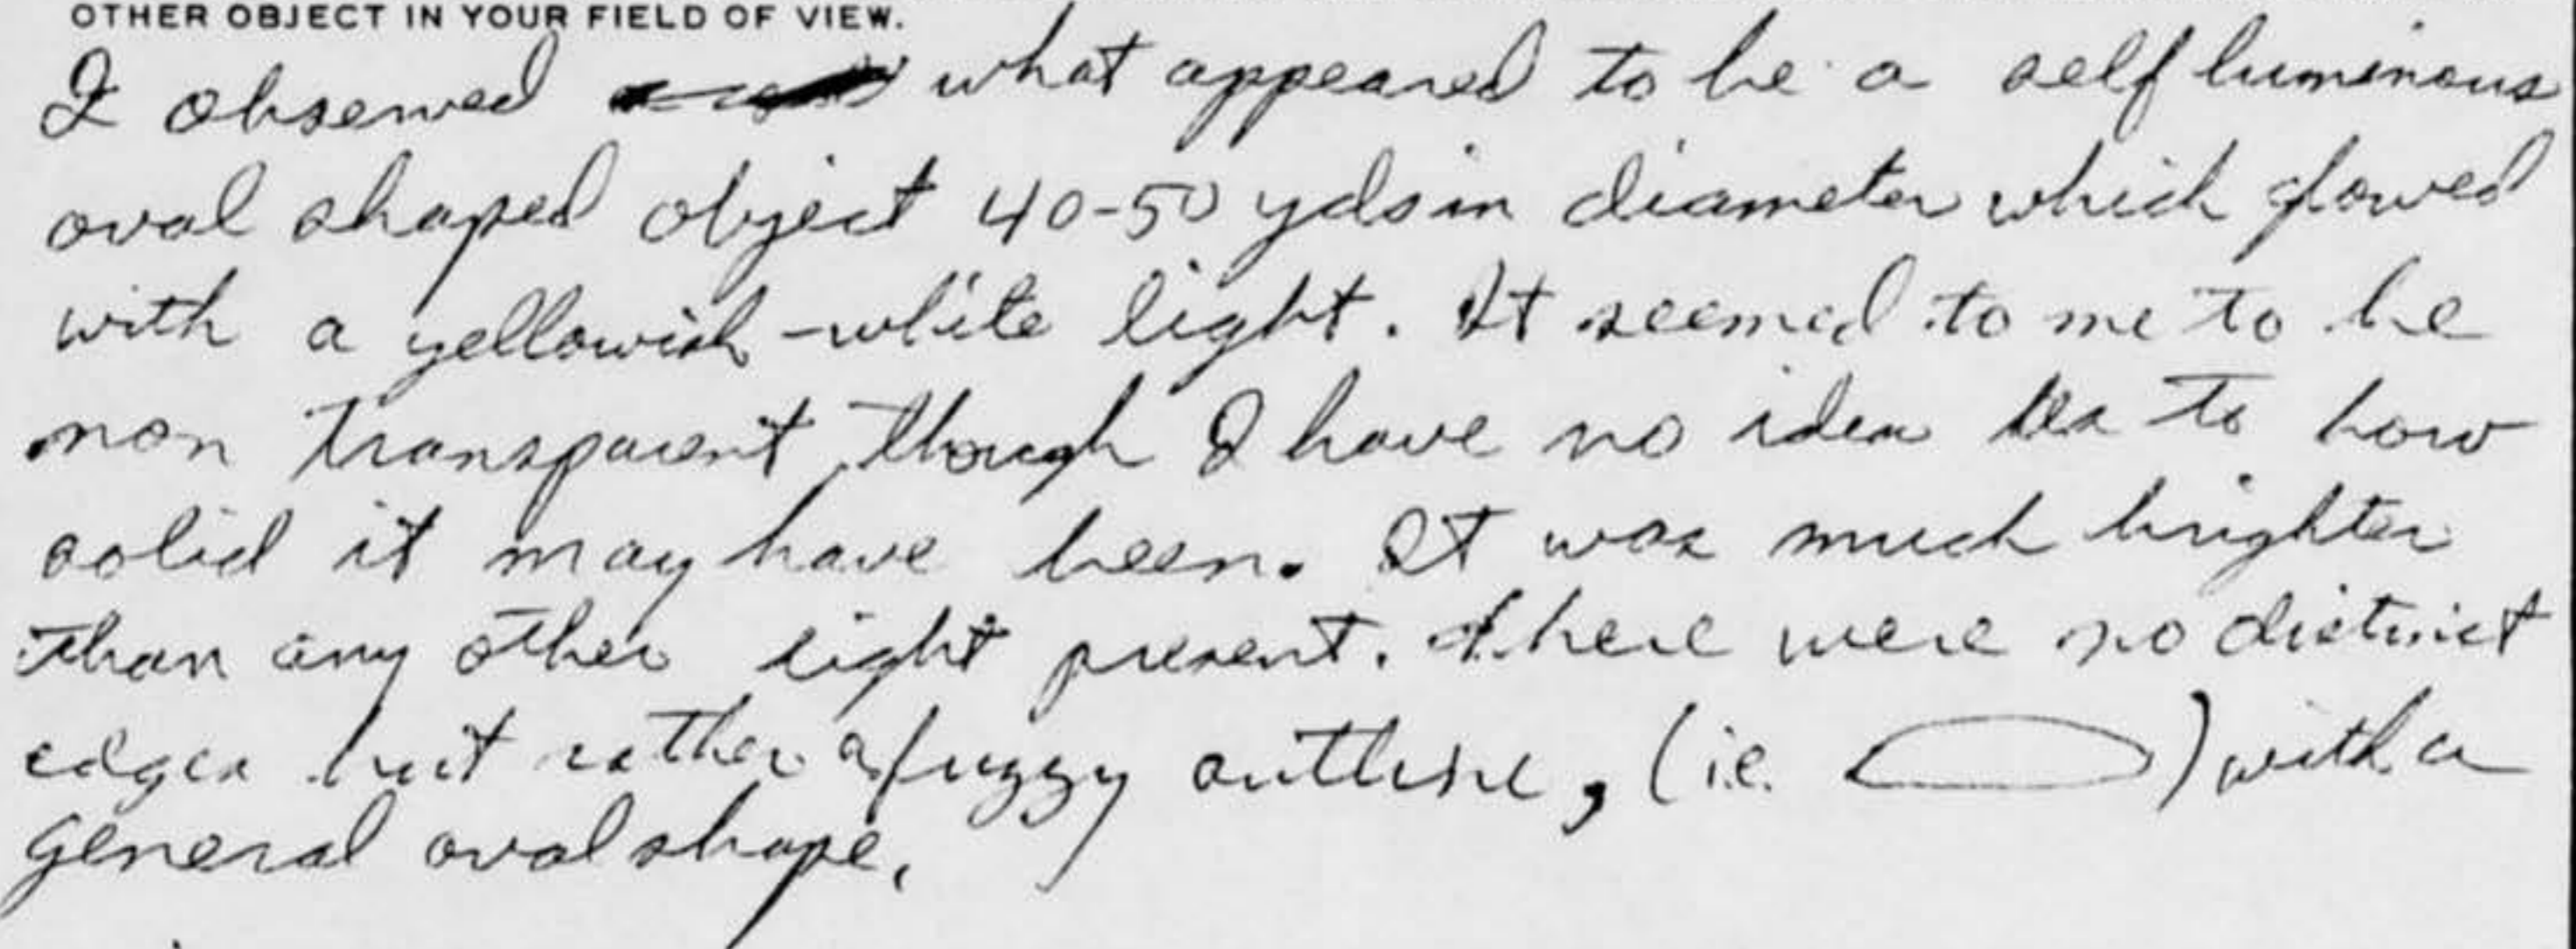 OTHER OBJECT IN YOUR FIELD OF VIEW.
I observed what appeared to be a self luminous
oval shaped object 40-50 yds in diameter which glowed
with a yellowish-white light. It seemed to me to be
non transparent, though I have no idea as to how
solid it may have been. It was much brighter
than any other light present. There were no distinct
edges but rather a fuzzy outline, (i.e. ) with a
general oval shape.